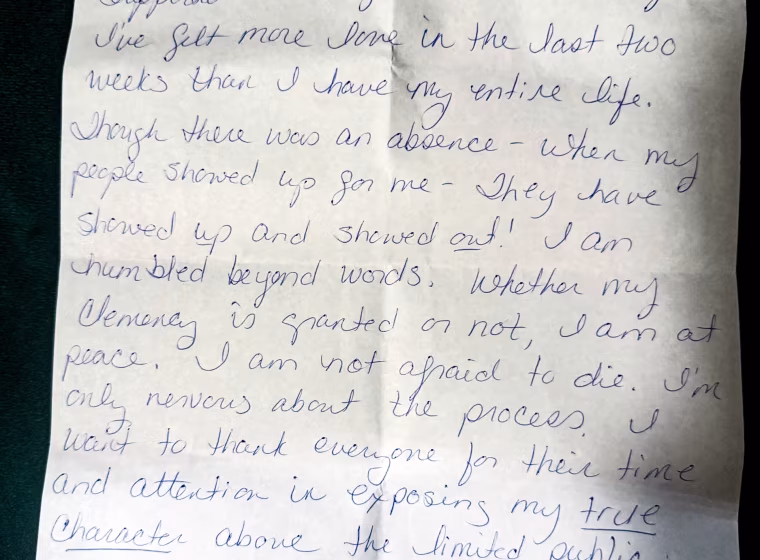 I've felt more love in the last two
weeks than I have my entire life.
Though there was an absence - when my
people showed up for me - They have
showed up and showed out! I am
humbled beyond words. Whether my
Clemency is granted or not, I am at
peace. I am not afraid to die. I'm
only nervous about the process. I
want to thank everyone for their time
and attention in exposing my true
character above the limited public